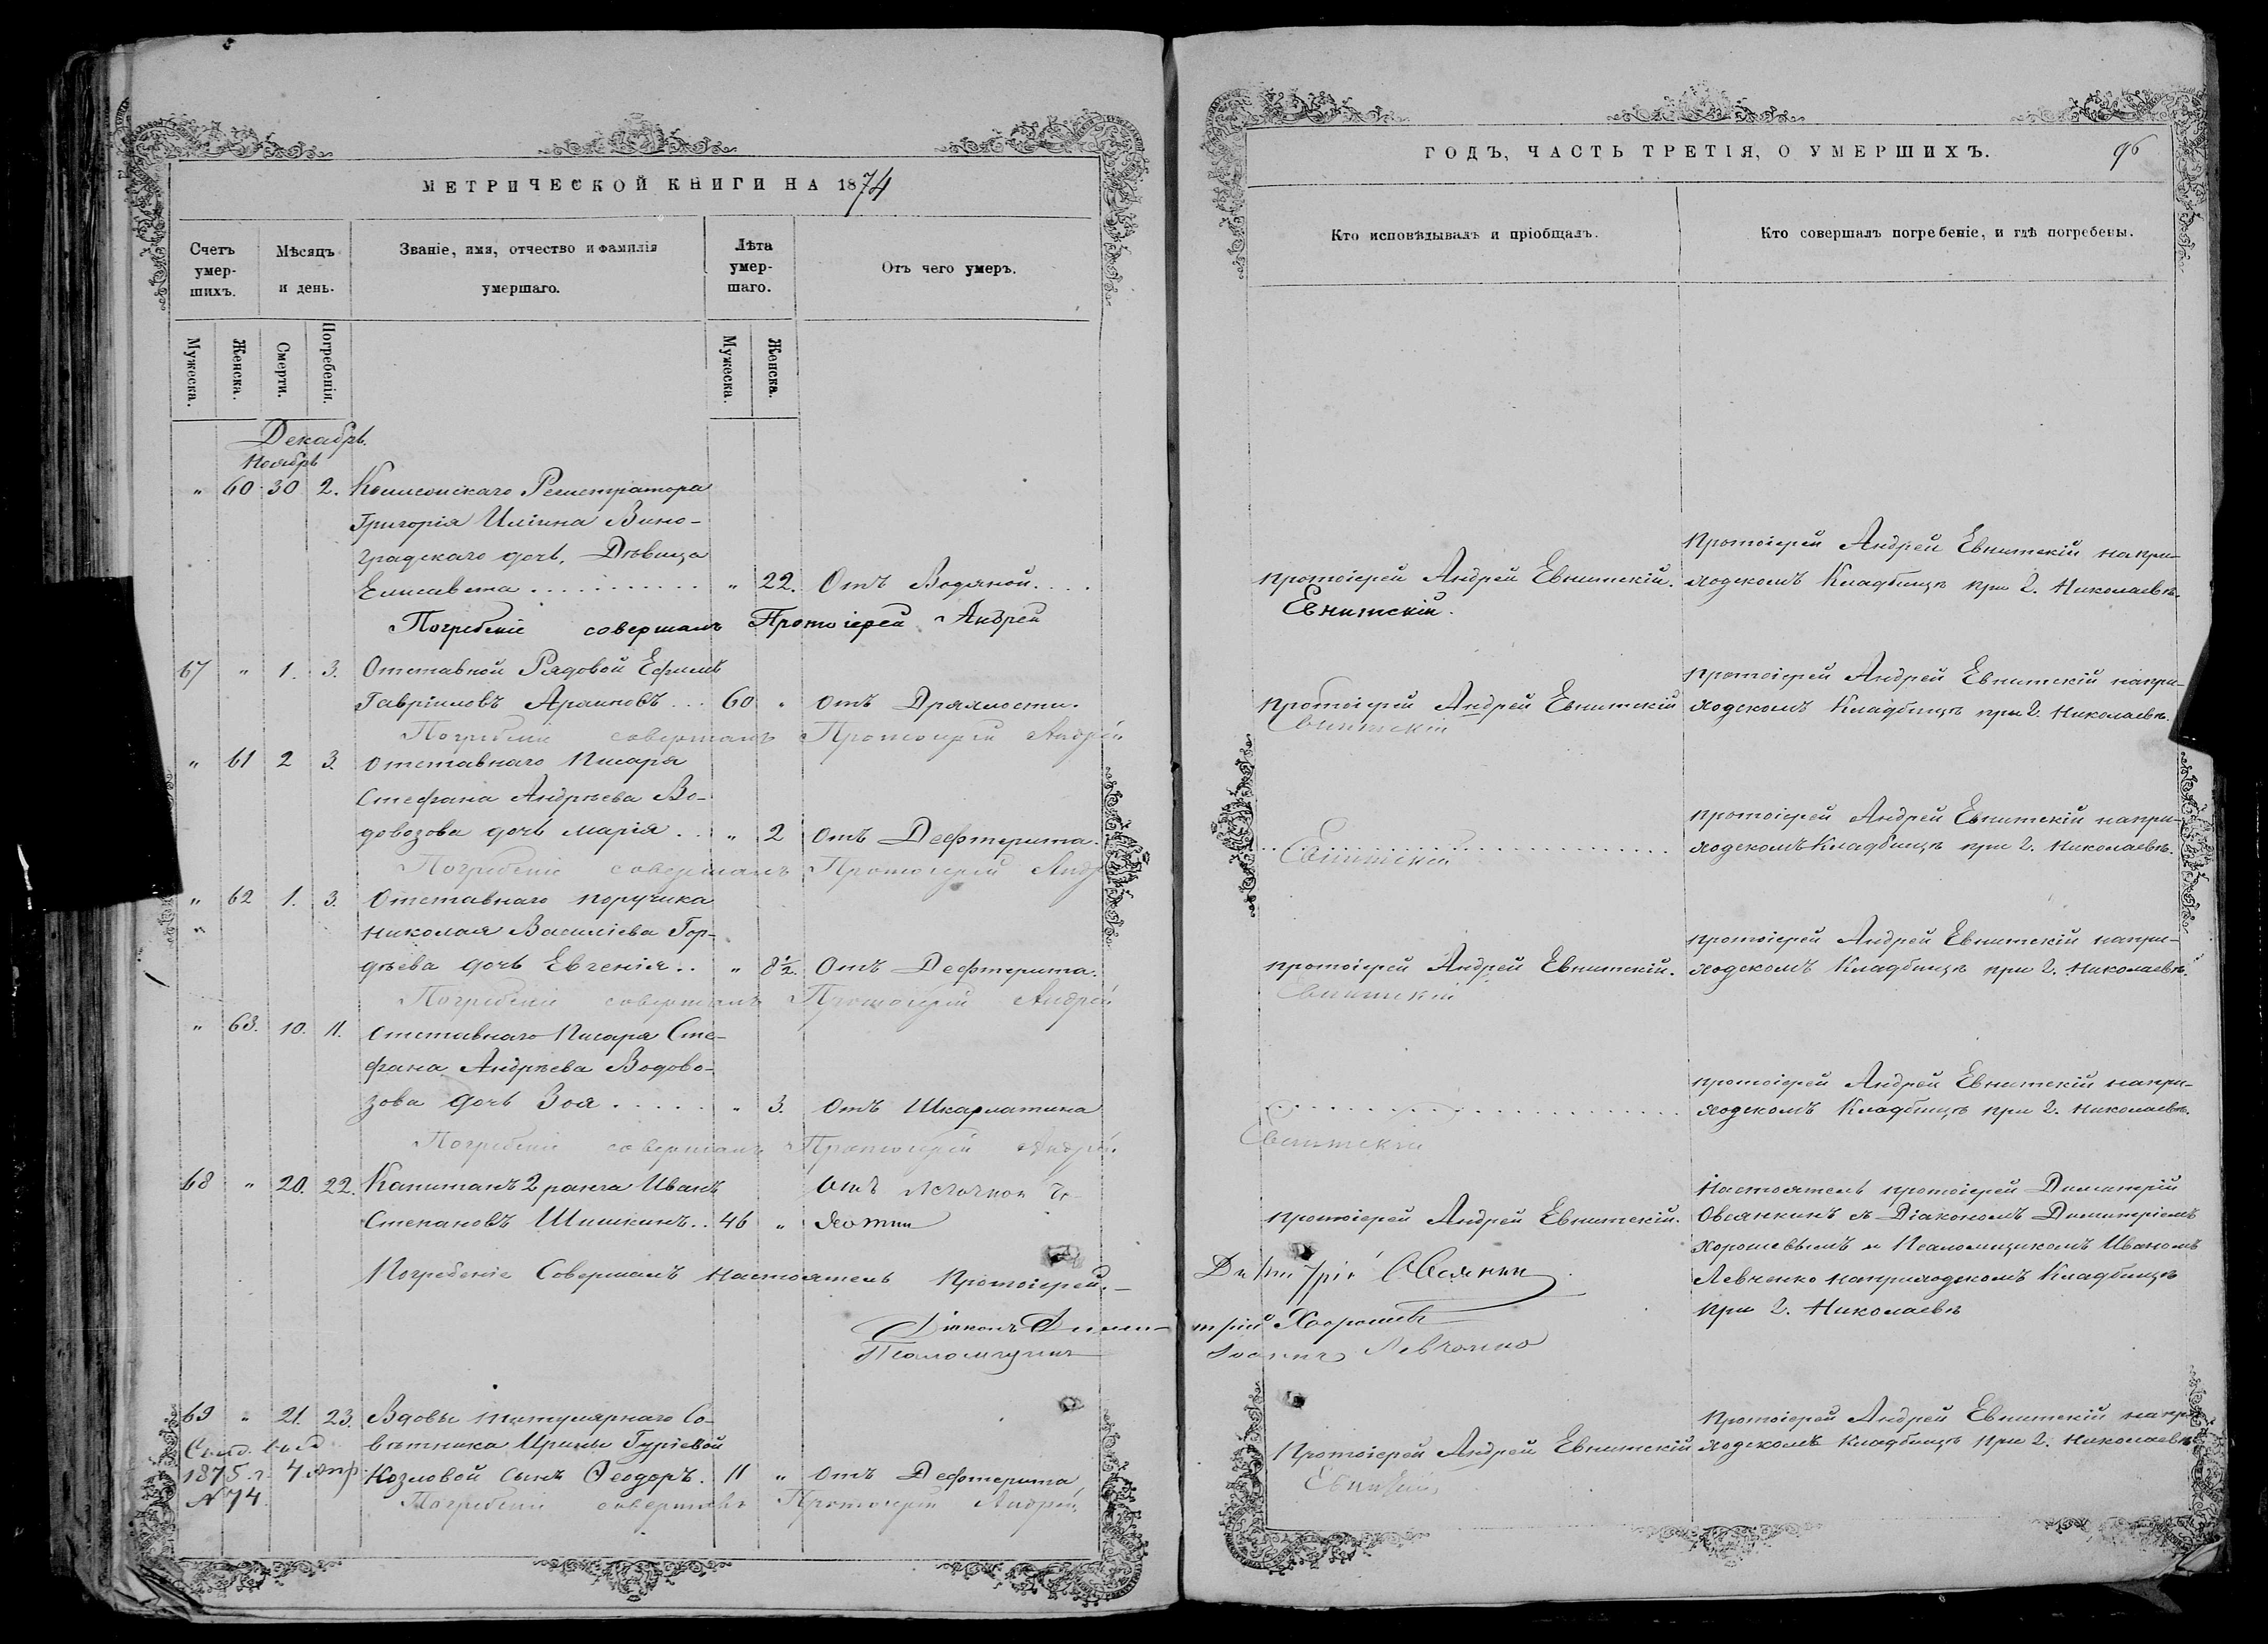 МЕТРИЧЕСКОЙ КНИГИ НА 1874
Счетъ умер-шихъ.
Мѣсяцъ и день.
Званіе, имя, отчество и фамилія умершаго.
Лѣта умер-шаго.
Отъ чего умеръ.
Мужеска.
Женска.
Смерти.
Погребенія.
Мужеска.
Женска.
Декабрь.
Ноябрь
" 60 30 2. Коллежскаго Регистратора
Григорія Ильина Вино-
градскаго дочь, Дѣвица
Елисавета . . . . . . . . . . . " 22. Отъ Водяной. . . .
Погребеніе совершалъ Протоіерей Андрей
67 " 1. 3. Отставной Рядовой Ефимъ
Гавріиловъ . . . 60 " отъ Дряхлости.
Погребеніе совершалъ Протоіерей Андрей
" 61 2 3. Отставнаго Писаря
Стефана Андрѣева Во-
довозова дочь Марія . . " 2 отъ Дефтерита.
Погребеніе совершалъ Протоіерей Андр
" 62 1. 3. Отставнаго поручика
"
Николая Василіева Гор-
дѣева дочь Евгенія . . " 8½. Отъ Дефтерита.
Погребеніе совершалъ Протоіерей Андрей
" 63. 10. 11. Отставнаго Писаря Сте-
фана Андрѣева Водово-
зова дочь Зоя . . . . . " 3. Отъ Шкарлатина
Погребеніе совершалъ Протоіерей Андрей
68 " 20. 22. Капитанъ 2 ранга Иванъ Отъ Легочной Ча-
Степановъ Шишкинъ . . 46 " хотки
Погребеніе Совершалъ Настоятель Протоіерей
Діаконъ Дими-
Псаломщикъ
69 " 21. 23. Вдовы титулярнаго Со-
вѣтника Ирины Гуріевой
Козловой сынъ Ѳеодоръ. 11 " отъ Дефтерита
1875 г. 4 апр
N 74
Погребеніе совершалъ Протоіерей Андрей
ГОДЪ, ЧАСТЬ ТРЕТІЯ, О УМЕРШИХЪ.
96
Кто исповѣдывалъ и пріобщалъ.
Кто совершалъ погребеніе, и гдѣ погребены.
Протоіерей Андрей Евнитскій на при-
протоіерей Андрей Евнитскій. ходскомъ Кладбищѣ при г. Николаевѣ.
Евнитскій.
Протоіерей Андрей Евнитскій на при-
протоіерей Андрей Евнитскій ходскомъ Кладбищѣ при г. Николаевѣ.
Евнитскій
протоіерей Андрей Евнитскій на при-
ходскомъ Кладбищѣ при г. Николаевѣ.
Евнитскій
протоіерей Андрей Евнитскій на при-
протоіерей Андрей Евнитскій. ходскомъ Кладбищѣ при г. Николаевѣ.
Евнитскій
протоіерей Андрей Евнитскій на при-
ходскомъ Кладбищѣ при г. Николаевѣ.
Евнитскій
Настоятель протоіерей Димитрій
протоіерей Андрей Евнитскій. Овсянкинъ съ Діакономъ Димитріемъ
Хорошевымъ и Псаломщикомъ Иваномъ
Димитрій Овсянкинъ
Левченко на приходскомъ Кладбищѣ
при г. Николаевѣ
трій Хорошевъ
Іоаннъ Левченко
Протоіерей Андрей Евнитскій на при
Протоіерей Андрей Евнитскій ходскомъ Кладбищѣ при г. Николаевѣ
Евнитскій